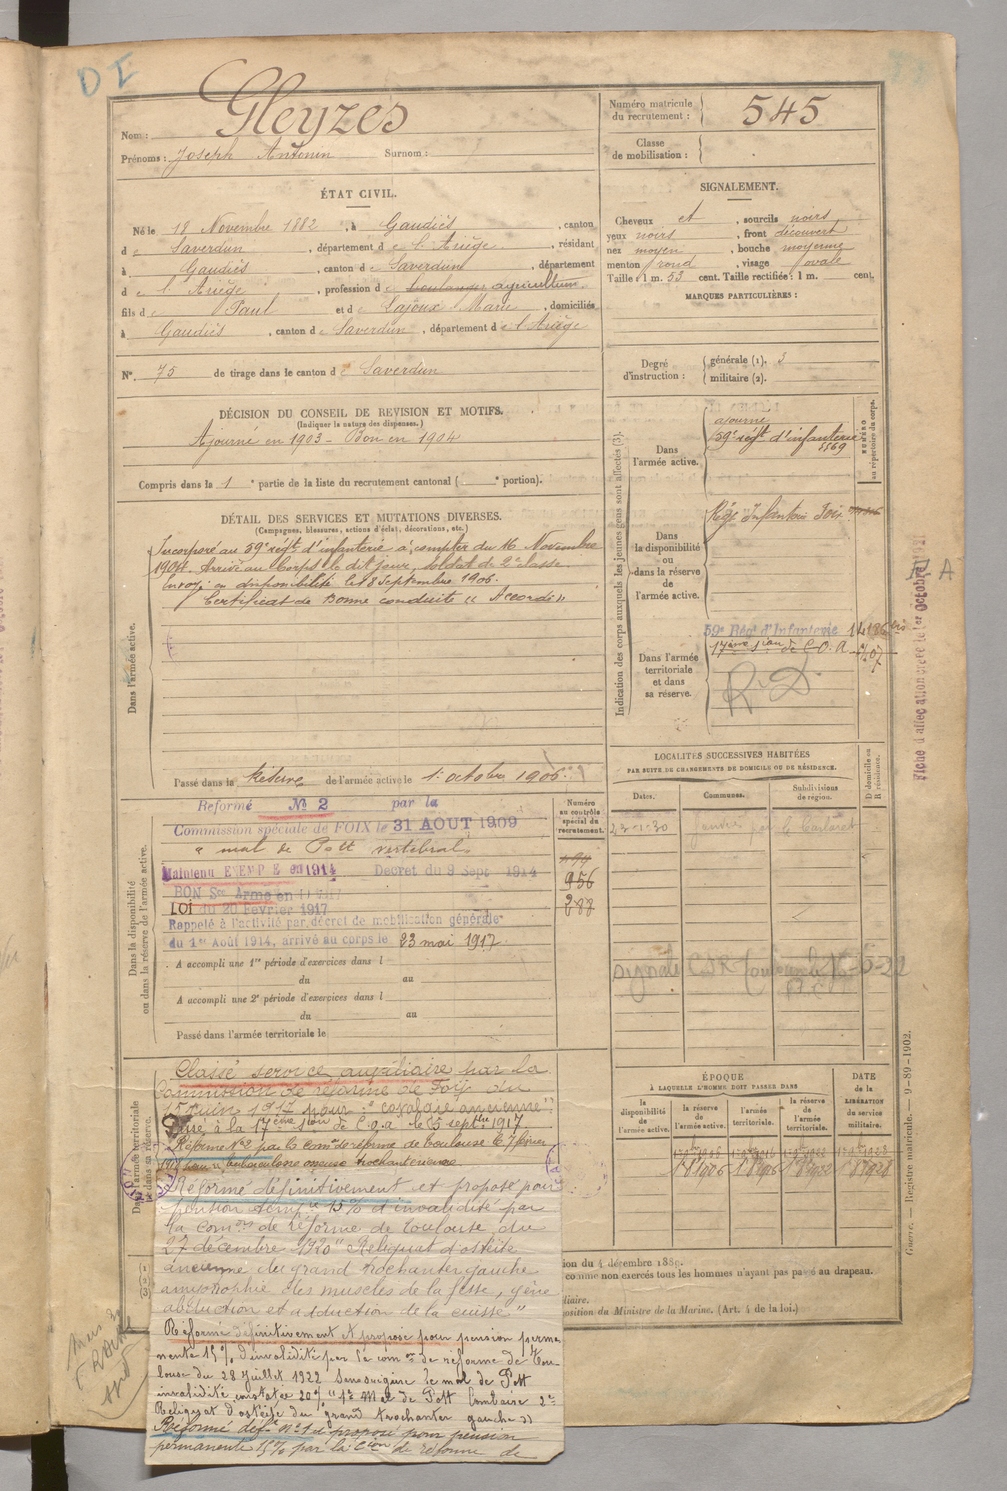 DE
Nom : Gleyzes
Prénoms : Joseph Antonin Surnom :
Numéro matricule du recrutement : 545
Classe de mobilisation :
ÉTAT CIVIL.
Né le 18 Novembre 1882, à Gaudiès, canton
de Saverdun, département de l'Ariège, résidant
à Gaudiès, canton de Saverdun, département
de l'Ariège, profession de boulanger agriculteur
fils de Paul et de Lajoux Marie, domiciliés
à Gaudiès, canton de Saverdun, département de l'Ariège
N° 75 de tirage dans le canton de Saverdun
SIGNALEMENT.
Cheveux et, sourcils noirs
yeux noirs, front découvert
nez moyen, bouche moyenne
menton rond, visage ovale
Taille : 1 m. 53 cent. Taille rectifiée : 1 m. cent.
MARQUES PARTICULIÈRES :
Degré d'instruction : générale (1). 3
militaire (2).
DÉCISION DU CONSEIL DE REVISION ET MOTIFS.
(Indiquer la nature des dispenses.)
Ajourné en 1903 - Bon en 1904
Compris dans la 1e partie de la liste du recrutement cantonal ( e portion).
DÉTAIL DES SERVICES ET MUTATIONS DIVERSES.
(Campagnes, blessures, actions d'éclat, décorations, etc.)
Dans l'armée active.
Incorporé au 59e régt d'infanterie à compter du 16 Novembre
1904. Arrivé au Corps le dit jour, soldat de 2e classe.
Envoyé en disponibilité le 18 Septembre 1906.
Certificat de Bonne conduite « Accordé »
Passé dans la Réserve de l'armée active le 1er octobre 1906.
Indication des corps auxquels les jeunes gens sont affectés (3).
NUMÉRO au répertoire du corps.
Dans l'armée active.
ajourné
59e régt d'infanterie
5569
Dans la disponibilité ou dans la réserve de l'armée active.
Rég. Infanterie Foix
Dans l'armée territoriale et dans sa réserve.
59e Régt d'Infanterie
17ème Son de C.O.A
R.D.
Fiche d'affectation créée le 1er Octobre
A
Dans la disponibilité ou dans la réserve de l'armée active.
Numéro au contrôle spécial du recrutement.
Réformé No 2 par la
Commission spéciale de FOIX le 31 AOUT 1909
" mal de Pott vertébral
Maintenu EXEMPTÉ en 1914 Décret du 9 Sept 1914
BON Sce Armé en
LOI du 20 Février 1917
Rappelé à l'activité par décret de mobilisation générale
du 1er Août 1914, arrivé au corps le 23 mai 1917.
956
288
A accompli une 1re période d'exercices dans l
du au
A accompli une 2e période d'exercices dans l
du au
Passé dans l'armée territoriale le
LOCALITÉS SUCCESSIVES HABITÉES
PAR SUITE DE CHANGEMENTS DE DOMICILE OU DE RÉSIDENCE.
Dates. Communes. Subdivisions de région. D domicile ou R résidence.
23-1-30
Dans l'armée territoriale et dans sa réserve.
Classé service auxiliaire par la
Commission de réforme de Foix du
15 juin 1917 pour :
Passé à la 17ème Son de C.O.A le 5 septbre 1917
Réformé No 2 par la comon de réforme de Toulouse le 7 février
Réformé définitivement et proposé pour
pension tempre 15% d'invalidité par
la Comon de Réforme de Toulouse du
27 décembre 1920 " Reliquat d'ostéite
ancienne du grand trochanter gauche
amyotrophie des muscles de la fesse, gêne
abduction et adduction de la cuisse."
Réformé définitivement et proposé pour pension perma
nente 15% d'invalidité par la comon de réforme de Tou
louse du 28 Juillet 1922
invalidité constatée 20% " 1e Mal de Pott lombaire 2e
Reliquat d'ostéite du grand trochanter gauche "
Réformé déft No 1 et proposé pour pension
permanente 15% par la Cion de réforme de
ÉPOQUE
À LAQUELLE L'HOMME DOIT PASSER DANS
DATE de la LIBÉRATION du service militaire.
la disponibilité de l'armée active. la réserve de l'armée active. l'armée territoriale. la réserve de l'armée territoriale.
ion du 4 décembre 1889.
comme non exercés tous les hommes n'ayant pas passé au drapeau.
liaire.
position du Ministre de la Marine. (Art. 4 de la loi.)
Guerre. — Registre matricule. — 9-89-1902.